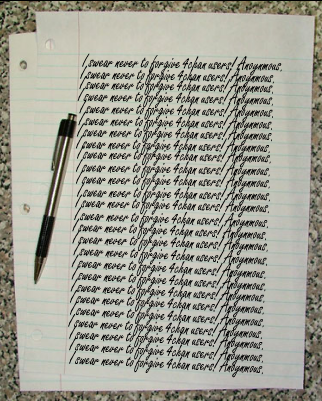 I swear never to forgive 4chan users! Anoynmous.
I swear never to forgive 4chan users! Anoynmous.
I swear never to forgive 4chan users! Anoynmous.
I swear never to forgive 4chan users! Anoynmous.
I swear never to forgive 4chan users! Anoynmous.
I swear never to forgive 4chan users! Anoynmous.
I swear never to forgive 4chan users! Anoynmous.
I swear never to forgive 4chan users! Anoynmous.
I swear never to forgive 4chan users! Anoynmous.
I swear never to forgive 4chan users! Anoynmous.
I swear never to forgive 4chan users! Anoynmous.
I swear never to forgive 4chan users! Anoynmous.
I swear never to forgive 4chan users! Anoynmous.
I swear never to forgive 4chan users! Anoynmous.
I swear never to forgive 4chan users! Anoynmous.
I swear never to forgive 4chan users! Anoynmous.
I swear never to forgive 4chan users! Anoynmous.
I swear never to forgive 4chan users! Anoynmous.
I swear never to forgive 4chan users! Anoynmous.
I swear never to forgive 4chan users! Anoynmous.
I swear never to forgive 4chan users! Anoynmous.
I swear never to forgive 4chan users! Anoynmous.
I swear never to forgive 4chan users! Anoynmous.
I swear never to forgive 4chan users! Anoynmous.
I swear never to forgive 4chan users! Anoynmous.
I swear never to forgive 4chan users! Anoynmous.